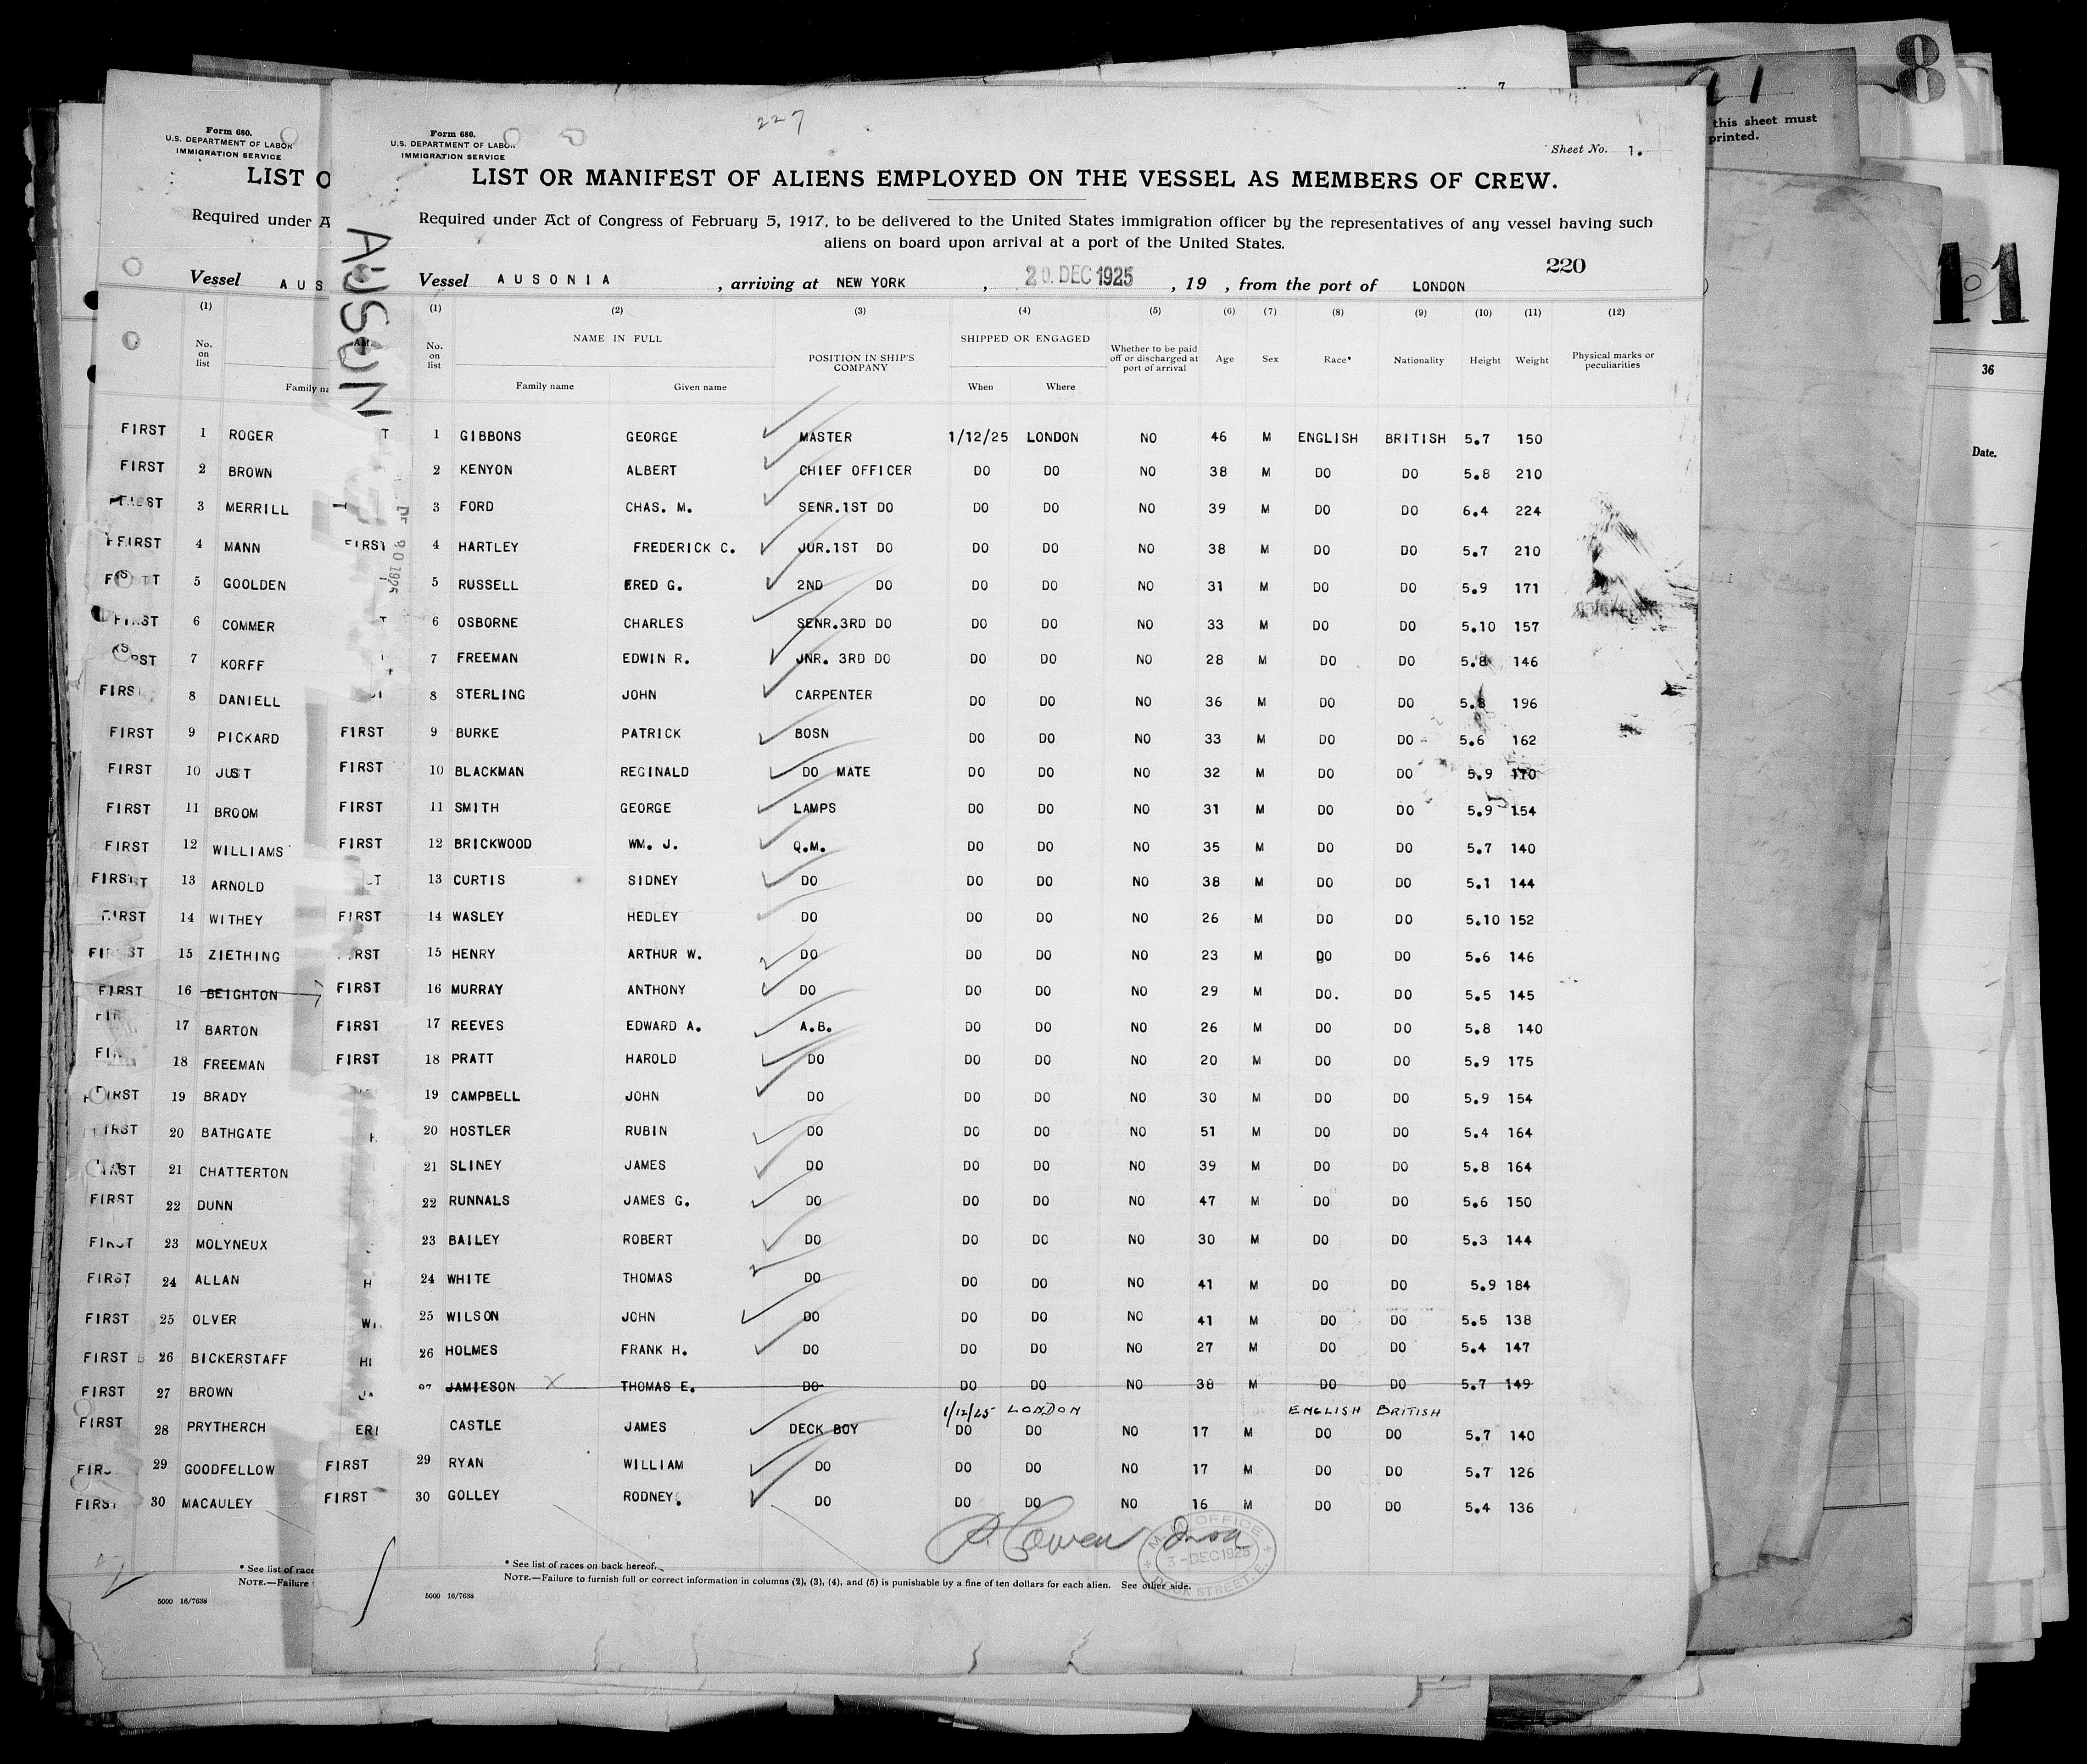 227
8
91
this sheet must
printed.
11
36
Date.
Form 680.
U.S. DEPARTMENT OF LABOR
IMMIGRATION SERVICE
LIST O
Required under A
Vessel AUS
(1)
No. on list
Family na
FIRST 1 ROGER
FIRST 2 BROWN
3 MERRILL
FIRST 4 MANN
5 GOOLDEN
FIRST 6 COMMER
7 KORFF
FIRST 8 DANIELL
FIRST 9 PICKARD
FIRST 10 JUST
FIRST 11 BROOM
FIRST 12 WILLIAMS
FIRST 13 ARNOLD
FIRST 14 WITHEY
15 ZIETHING
FIRST 16 BEIGHTON
17 BARTON
18 FREEMAN
FIRST 19 BRADY
FIRST 20 BATHGATE
21 CHATTERTON
FIRST 22 DUNN
FIRST 23 MOLYNEUX
FIRST 24 ALLAN
FIRST 25 OLVER
FIRST 26 BICKERSTAFF
FIRST 27 BROWN
FIRST 28 PRYTHERCH
29 GOODFELLOW
FIRST 30 MACAULEY
* See list of race
NOTE.—Failure
5000 16/7638
AUSON
Form 680.
U.S. DEPARTMENT OF LABOR
IMMIGRATION SERVICE
Sheet No. 1.
LIST OR MANIFEST OF ALIENS EMPLOYED ON THE VESSEL AS MEMBERS OF CREW.
Required under Act of Congress of February 5, 1917, to be delivered to the United States immigration officer by the representatives of any vessel having such
aliens on board upon arrival at a port of the United States.
220
Vessel AUSONIA , arriving at NEW YORK , 20. DEC 1925 , 19 , from the port of LONDON
(1) (2) (3) (4) (5) (6) (7) (8) (9) (10) (11) (12)
No. on list NAME IN FULL POSITION IN SHIP'S COMPANY SHIPPED OR ENGAGED Whether to be paid off or discharged at port of arrival Age Sex Race* Nationality Height Weight Physical marks or peculiarities
Family name Given name When Where
1 GIBBONS GEORGE MASTER 1/12/25 LONDON NO 46 M ENGLISH BRITISH 5.7 150
2 KENYON ALBERT CHIEF OFFICER DO DO NO 38 M DO DO 5.8 210
3 FORD CHAS. M. SENR.1ST DO DO DO NO 39 M DO DO 6.4 224
FIRST 4 HARTLEY FREDERICK C. JUR.1ST DO DO DO NO 38 M DO DO 5.7 210
5 RUSSELL FRED G. 2ND DO DO DO NO 31 M DO DO 5.9 171
6 OSBORNE CHARLES SENR.3RD DO DO DO NO 33 M DO DO 5.10 157
7 FREEMAN EDWIN R. JNR. 3RD DO DO DO NO 28 M DO DO 5.8 146
8 STERLING JOHN CARPENTER DO DO NO 36 M DO DO 5.8 196
FIRST 9 BURKE PATRICK BOSN DO DO NO 33 M DO DO 5.6 162
FIRST 10 BLACKMAN REGINALD DO MATE DO DO NO 32 M DO DO 5.9 170
FIRST 11 SMITH GEORGE LAMPS DO DO NO 31 M DO DO 5.9 154
FIRST 12 BRICKWOOD WM. J. Q.M. DO DO NO 35 M DO DO 5.7 140
13 CURTIS SIDNEY DO DO DO NO 38 M DO DO 5.1 144
FIRST 14 WASLEY HEDLEY DO DO DO NO 26 M DO DO 5.10 152
15 HENRY ARTHUR W. DO DO DO NO 23 M DO DO 5.6 146
FIRST 16 MURRAY ANTHONY DO DO DO NO 29 M DO. DO 5.5 145
FIRST 17 REEVES EDWARD A. A.B. DO DO NO 26 M DO DO 5.8 140
FIRST 18 PRATT HAROLD DO DO DO NO 20 M DO DO 5.9 175
19 CAMPBELL JOHN DO DO DO NO 30 M DO DO 5.9 154
20 HOSTLER RUBIN DO DO DO NO 51 M DO DO 5.4 164
21 SLINEY JAMES DO DO DO NO 39 M DO DO 5.8 164
22 RUNNALS JAMES G. DO DO DO NO 47 M DO DO 5.6 150
23 BAILEY ROBERT DO DO DO NO 30 M DO DO 5.3 144
24 WHITE THOMAS DO DO DO NO 41 M DO DO 5.9 184
25 WILSON JOHN DO DO DO NO 41 M DO DO 5.5 138
26 HOLMES FRANK H. DO DO DO NO 27 M DO DO 5.4 147
27 JAMIESON X THOMAS E. DO DO DO NO 38 M DO DO 5.7 149
1/12/25 LONDON ENGLISH BRITISH
CASTLE JAMES DECK BOY DO DO NO 17 M DO DO 5.7 140
FIRST 29 RYAN WILLIAM DO DO DO NO 17 M DO DO 5.7 126
FIRST 30 GOLLEY RODNEY. DO DO DO NO 16 M DO DO 5.4 136
M.M. OFFICE
3-DEC1925
DOCK STREET. E.
* See list of races on back hereof.
NOTE.—Failure to furnish full or correct information in columns (2), (3), (4), and (5) is punishable by a fine of ten dollars for each alien. See other side.
5000 16/7638